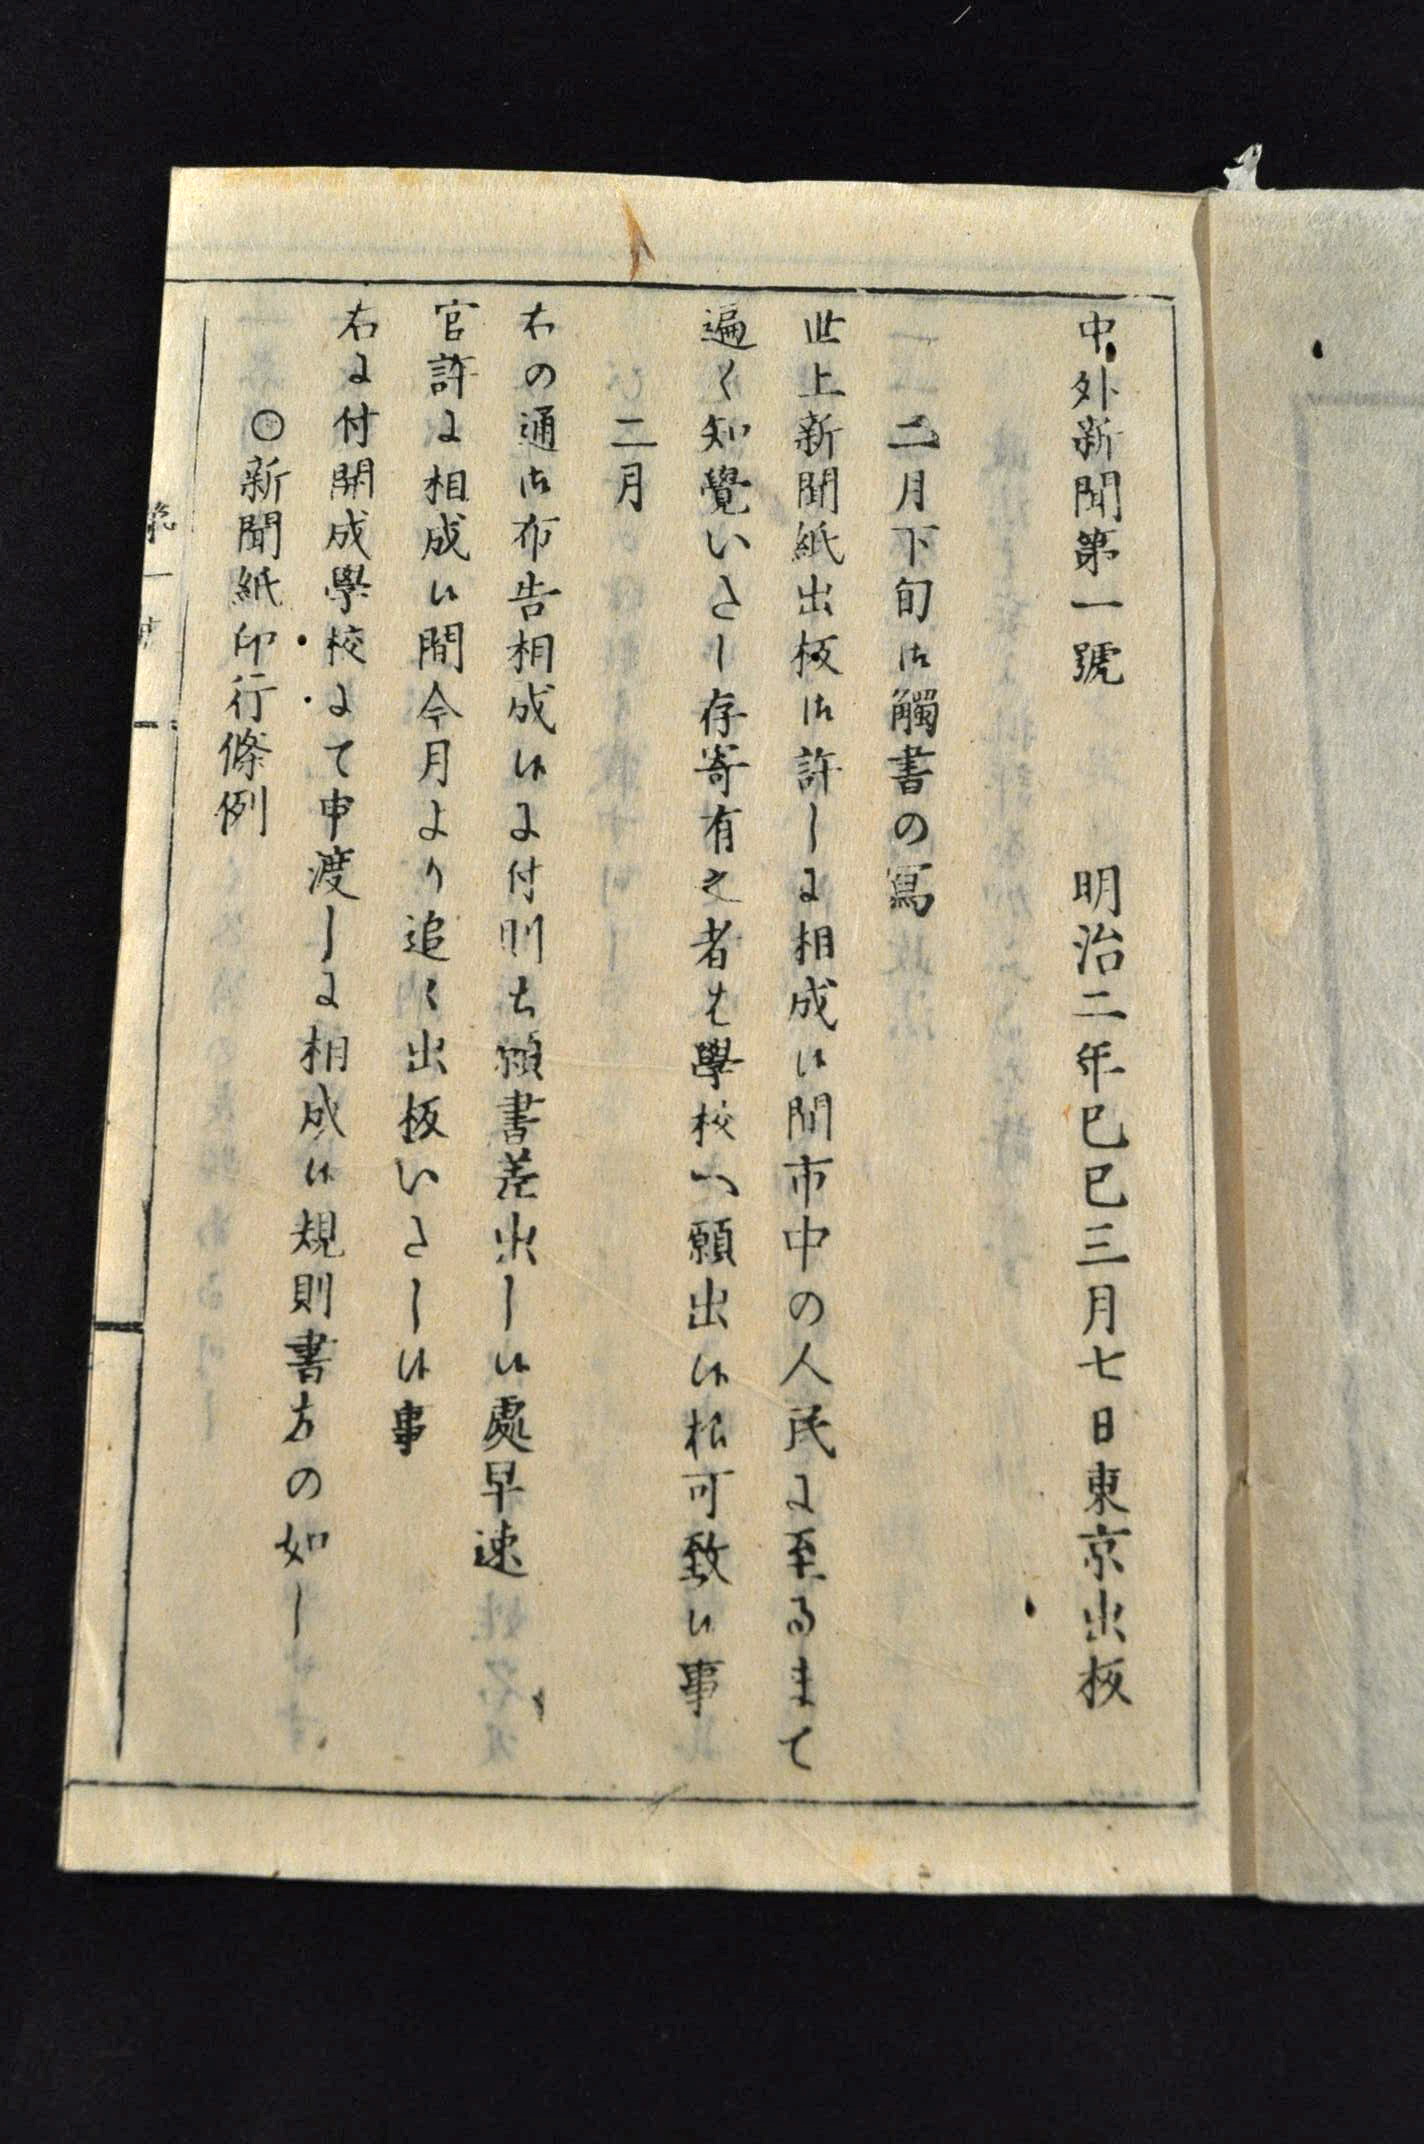 中外新聞第一號　明治二年己巳三月七日東京出板
二月下旬御觸書の寫
此上新聞紙出板御許しに相成候間市中の人民に至るまて
遍く知覺いたし存寄有之者は學校へ願出候様可致候事
二月
右の通御布告相成候に付則ち願書差出し候處早速
官許に相成候間今月より追々出板いたし候事
右に付開成學校にて申渡しに相成候規則書左の如し
○新聞紙印行條例